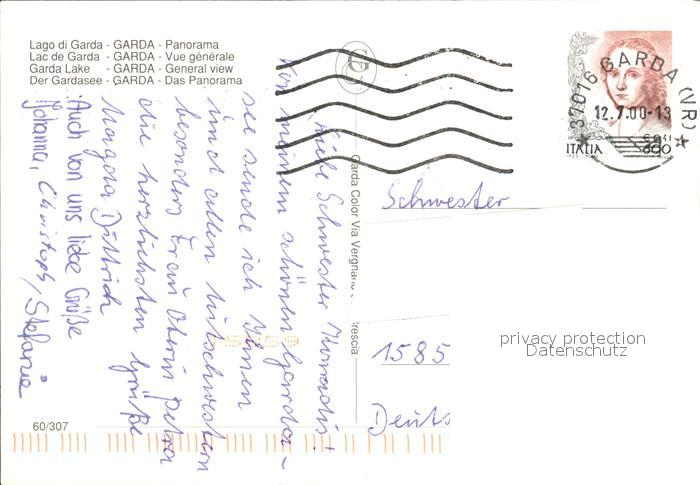 Lago di Garda - GARDA - Panorama
Lac de Garda - GARDA - Vue générale
Garda Lake - GARDA - General view
Der Gardasee - GARDA - Das Panorama
37016 GARDA (VR)
12.7.00-13
ITALIA
800
Liebe Schwester
Von meinem schönen Garda-
see sende ich Ihnen
und allen Mitschwestern
besonders Frau Oberin Petra
die herzlichsten Grüße
Margota Dittrich
Auch von uns liebe Grüße
Johanna, Christoph, Stefanie
Garda Color Via Vergnano
Brescia
Schwester
1585
Deuts
privacy protection
Datenschutz
60/307